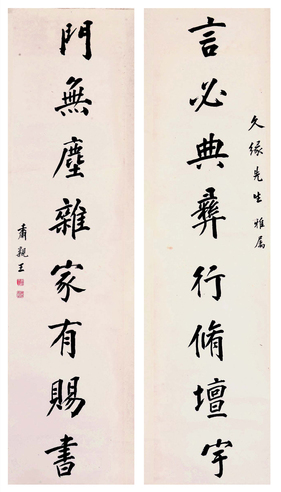 久緣先生雅屬
言必典彝行脩壇宇
門無塵雜家有賜書
肅親王